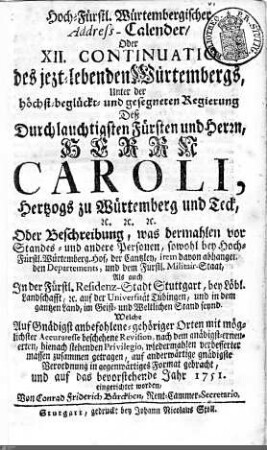 Hoch-Fürstl. Würtembergischer
Address-Calender/
Oder
XII. CONTINUATIO
des jezt-lebenden Würtembergs,
Unter der
höchst-beglückt- und gesegneten Regierung
Deß
Durchlauchtigsten Fürsten und Herrn,
HERRN
CAROLI,
Hertzogs zu Würtemberg und Teck,
ꝛc. ꝛc. ꝛc.
Oder Beschreibung, was dermahlen vor
Standes- und andere Personen, sowohl bey Hoch-
Fürstl. Würtemberg. Hof, der Cantzley, item davon abhangen-
den Departements, und dem Fürstl. Militair-Staat,
Als auch
In der Fürstl. Residenz-Stadt Stuttgart, bey Löbl.
Landschafft, ꝛc. auf der Universität Tübingen, und in dem
gantzen Land, im Geist- und Weltlichen Stand seynd.
Welche
Auf Gnädigst anbefohlene, gehöriger Orten mit mög-
lichster Accuratesse beschehene Revision, nach dem gnädigst-erneu-
erten, hienach stehenden Privilegio, wiedermahlen verbesserter
massen zusammen getragen, auf anderwärtige gnädigste
Verordnung in gegenwärtiges Format gebracht,
und auf das bevorstehende Jahr 1751.
eingerichtet worden,
Von Conrad Friderich Bürckhen, Rent-Cammer-Secretario.
Stutgart, gedruckt bey Johann Nicolaus Stoll.